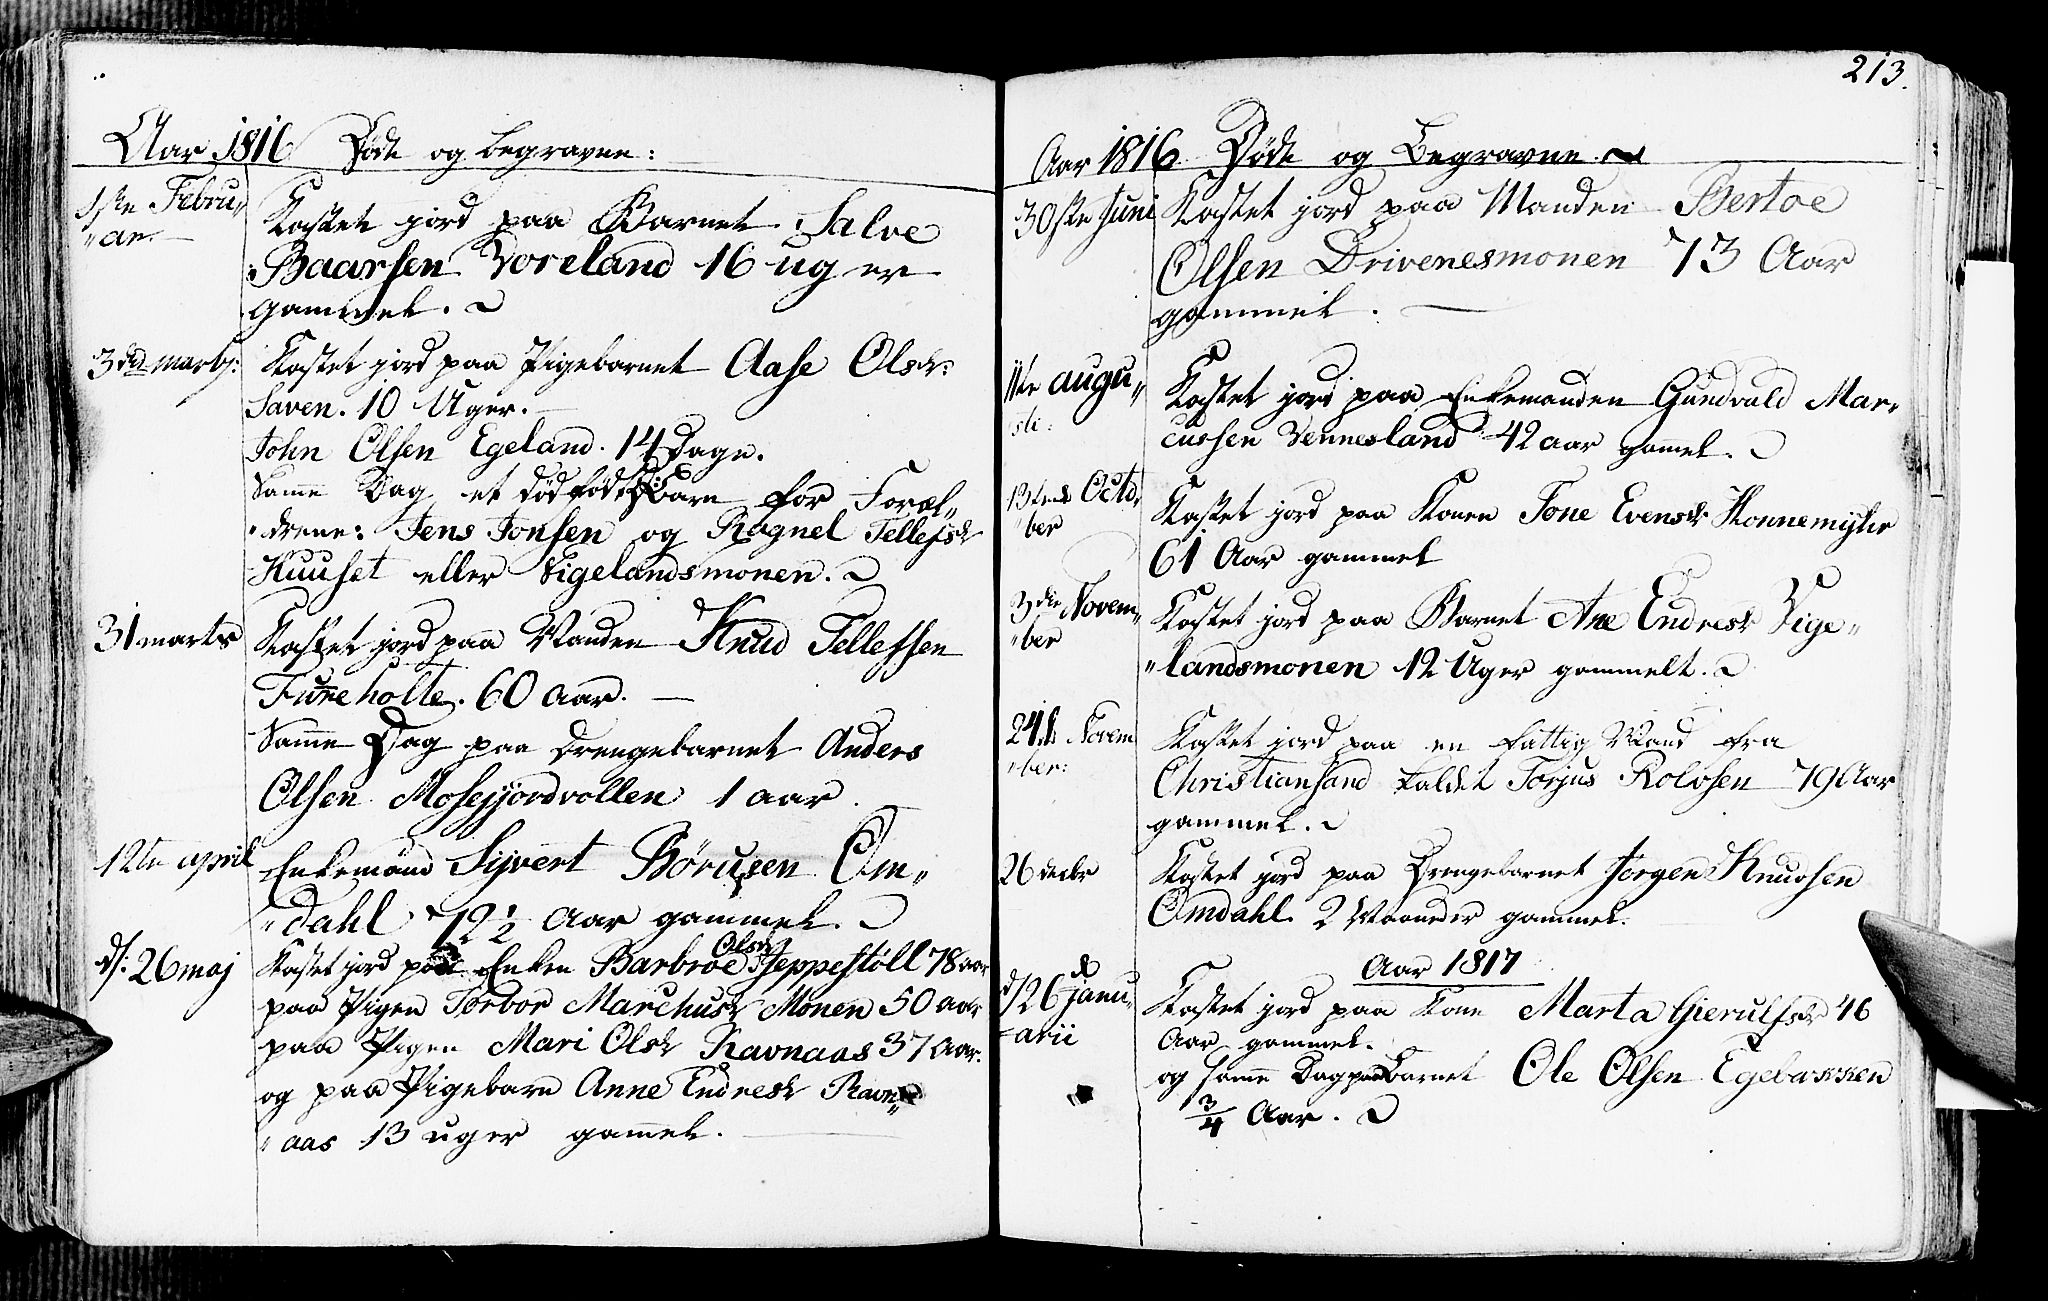 Aar 1816 Døde og begravne:
1ste Febru„
„ar.
Kastet jord paa Barnet Salve
Baarsen Voreland 16 uger
gammel.
3die marts:
Kastet jord paa Pigebarnet Aase Olsdr:
Saven. 10 Uger.
John Olsen Egeland. 14 Dage.
Samme Dag et dødfødt Barn for Foræl„
„drene: Jens Jonsen og Ragnel Tellefsdr
Kuuset eller Vigelandsmonen.
31 marts
Kastet jord paa Manden Knud Tellefsen
Fureholte. 60 aar.
Samme Dag paa Drengebarnet Anders
Olsen Mosejordvollen 1 aar.
12te april
Enkemand Sijvert Børusen Om„
„dahl 72 1/2 Aar gammel.
d: 26 maj
Kastet jord paa Enken Barbroe Olsdr Jeppestøll 78 aar
paa Pigen Torbor Marchusdr Monen 50 aar
paa Pigen Mari Olsdr Ravnaas 37 Aar.
og paa Pigebarn Anne Endresdr Ravn„
„aas 13 uger gamel.
213.
Aar 1816 Døde og Begravne.
30ste Juni
Kastet jord paa Manden Bertoe
Olsen Drivenesmonen 73 Aar
gammel.
11te augu„
sti:
Kastet jord paa Enkemanden Gundvald Mar„
cussen Vennesland 42 aar gamel.
13de Octo„
„ber
Kastet jord paa Konen Tone Evensdr Honnemyhr
61 Aar gammel
3die Novem„
„ber
Kastet jord paa Barnet Ane Endresdr Vige„
„landsmonen 12 Uger gammelt.
24de Novem
„ber:
Kastet jord paa en fattig Mand fra
Christiansand kaldet Torjus Rolvsen 79 Aar
gammel.
26 decbr
Kastet jord paa Drengebarnet Jørgen Knudsen
Omdahl 2 Maaneder gammel.
Aar 1817
d 26 janu„
arii
Kastet jord paa Kone Marta Gierulfsdr 46
Aar gammel.
og samme Dag paa Barnet Ole Olsen Egebakken
3/4 Aar.